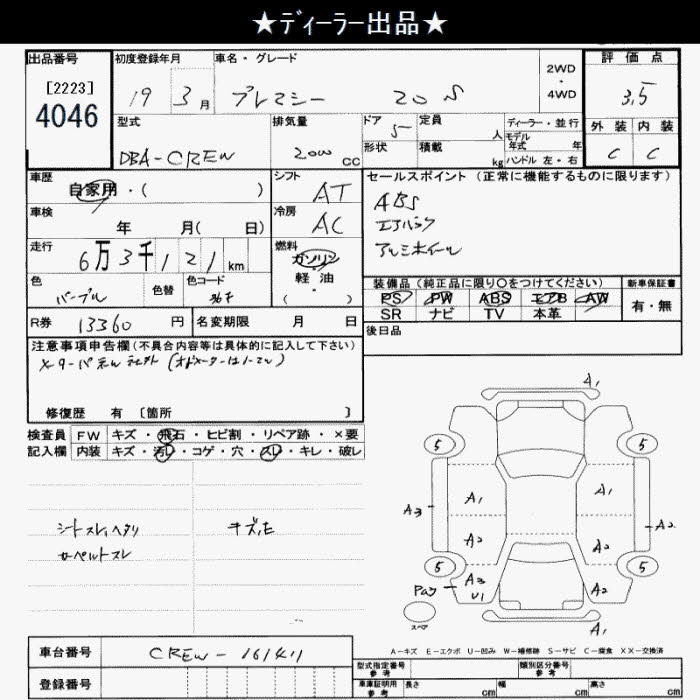 ★ディーラー出品★
出品番号
[2223]
4046
初度登録年月
19 3月
車名・グレード
プレマシー 20S
2WD
・
4WD
評価点
3,5
外装 内装
C C
型式
DBA-CREW
排気量
2000 cc
ドア
5
形状
定員
人
積載
kg
ディーラー・並行
モデル
年式 年
ハンドル 左・右
車歴
自家用・( )
シフト
AT
冷房
AC
セールスポイント (正常に機能するものに限ります)
ABS
エアバック
アルミホイール
車検
年 月( 日)
走行
6万3千121km
燃料
ガソリン
軽油
・
( )
色
パープル
色替
色コード
R券 13360 円
名変期限 月 日
装備品 (純正品に限り○をつけてください)
PS PW ABS エアB AW
SR ナビ TV 本革
新車保証書
有・無
後日品
注意事項申告欄(不具合内容等は具体的に記入して下さい)
修復歴 有 〔箇所 〕
検査員
記入欄
FW キズ・飛石・ヒビ割・リペア跡・×要
内装 キズ・汚レ・コゲ・穴・スレ・キレ・破レ
シートスレ,ヘタリ
カーペットスレ
A1
5 5
A1 A1
A3 A2
A2 A2
5 5
A3
U1
A2
スペア
A1
A-キズ E-エクボ U-凹み W-補修跡 S-サビ C-腐食 XX-交換済
車台番号
CREW-161411
登録番号
型式指定番号
参考
類別区分番号
参考
車庫証明用
参考
長さ cm
幅 cm
高さ cm